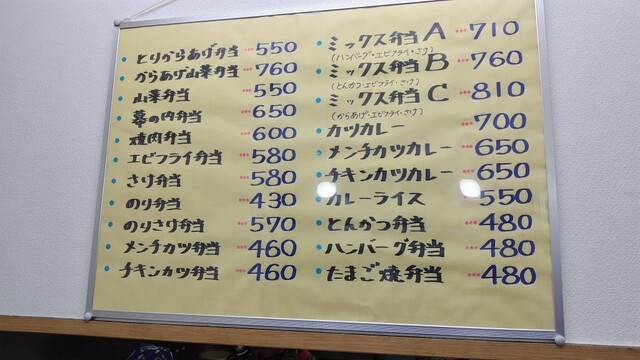 とりからあげ弁当 550
からあげ山菜弁当 760
山菜弁当 550
幕の内弁当 650
焼肉弁当 600
エビフライ弁当 580
さけ弁当 580
のり弁当 430
のりさけ弁当 570
メンチカツ弁当 460
チキンカツ弁当 460
ミックス弁当A 710
(ハンバーグ・エビフライ・さけ)
ミックス弁当B 760
(とんかつ・エビフライ・さけ)
ミックス弁当C 810
(からあげ・エビフライ・さけ)
カツカレー 700
メンチカツカレー 650
チキンカツカレー 650
カレーライス 550
とんかつ弁当 480
ハンバーグ弁当 480
たまご焼弁当 480